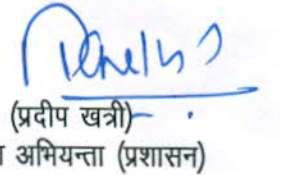 (प्रदीप खत्री)
अभियन्ता (प्रशासन)